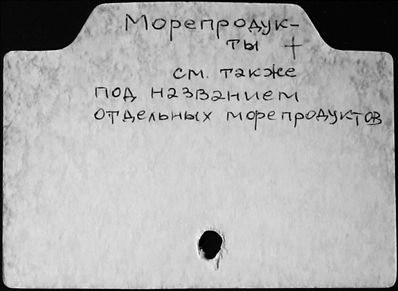 Морепродук-
ты +
см. также
под названием
отдельных морепродуктов